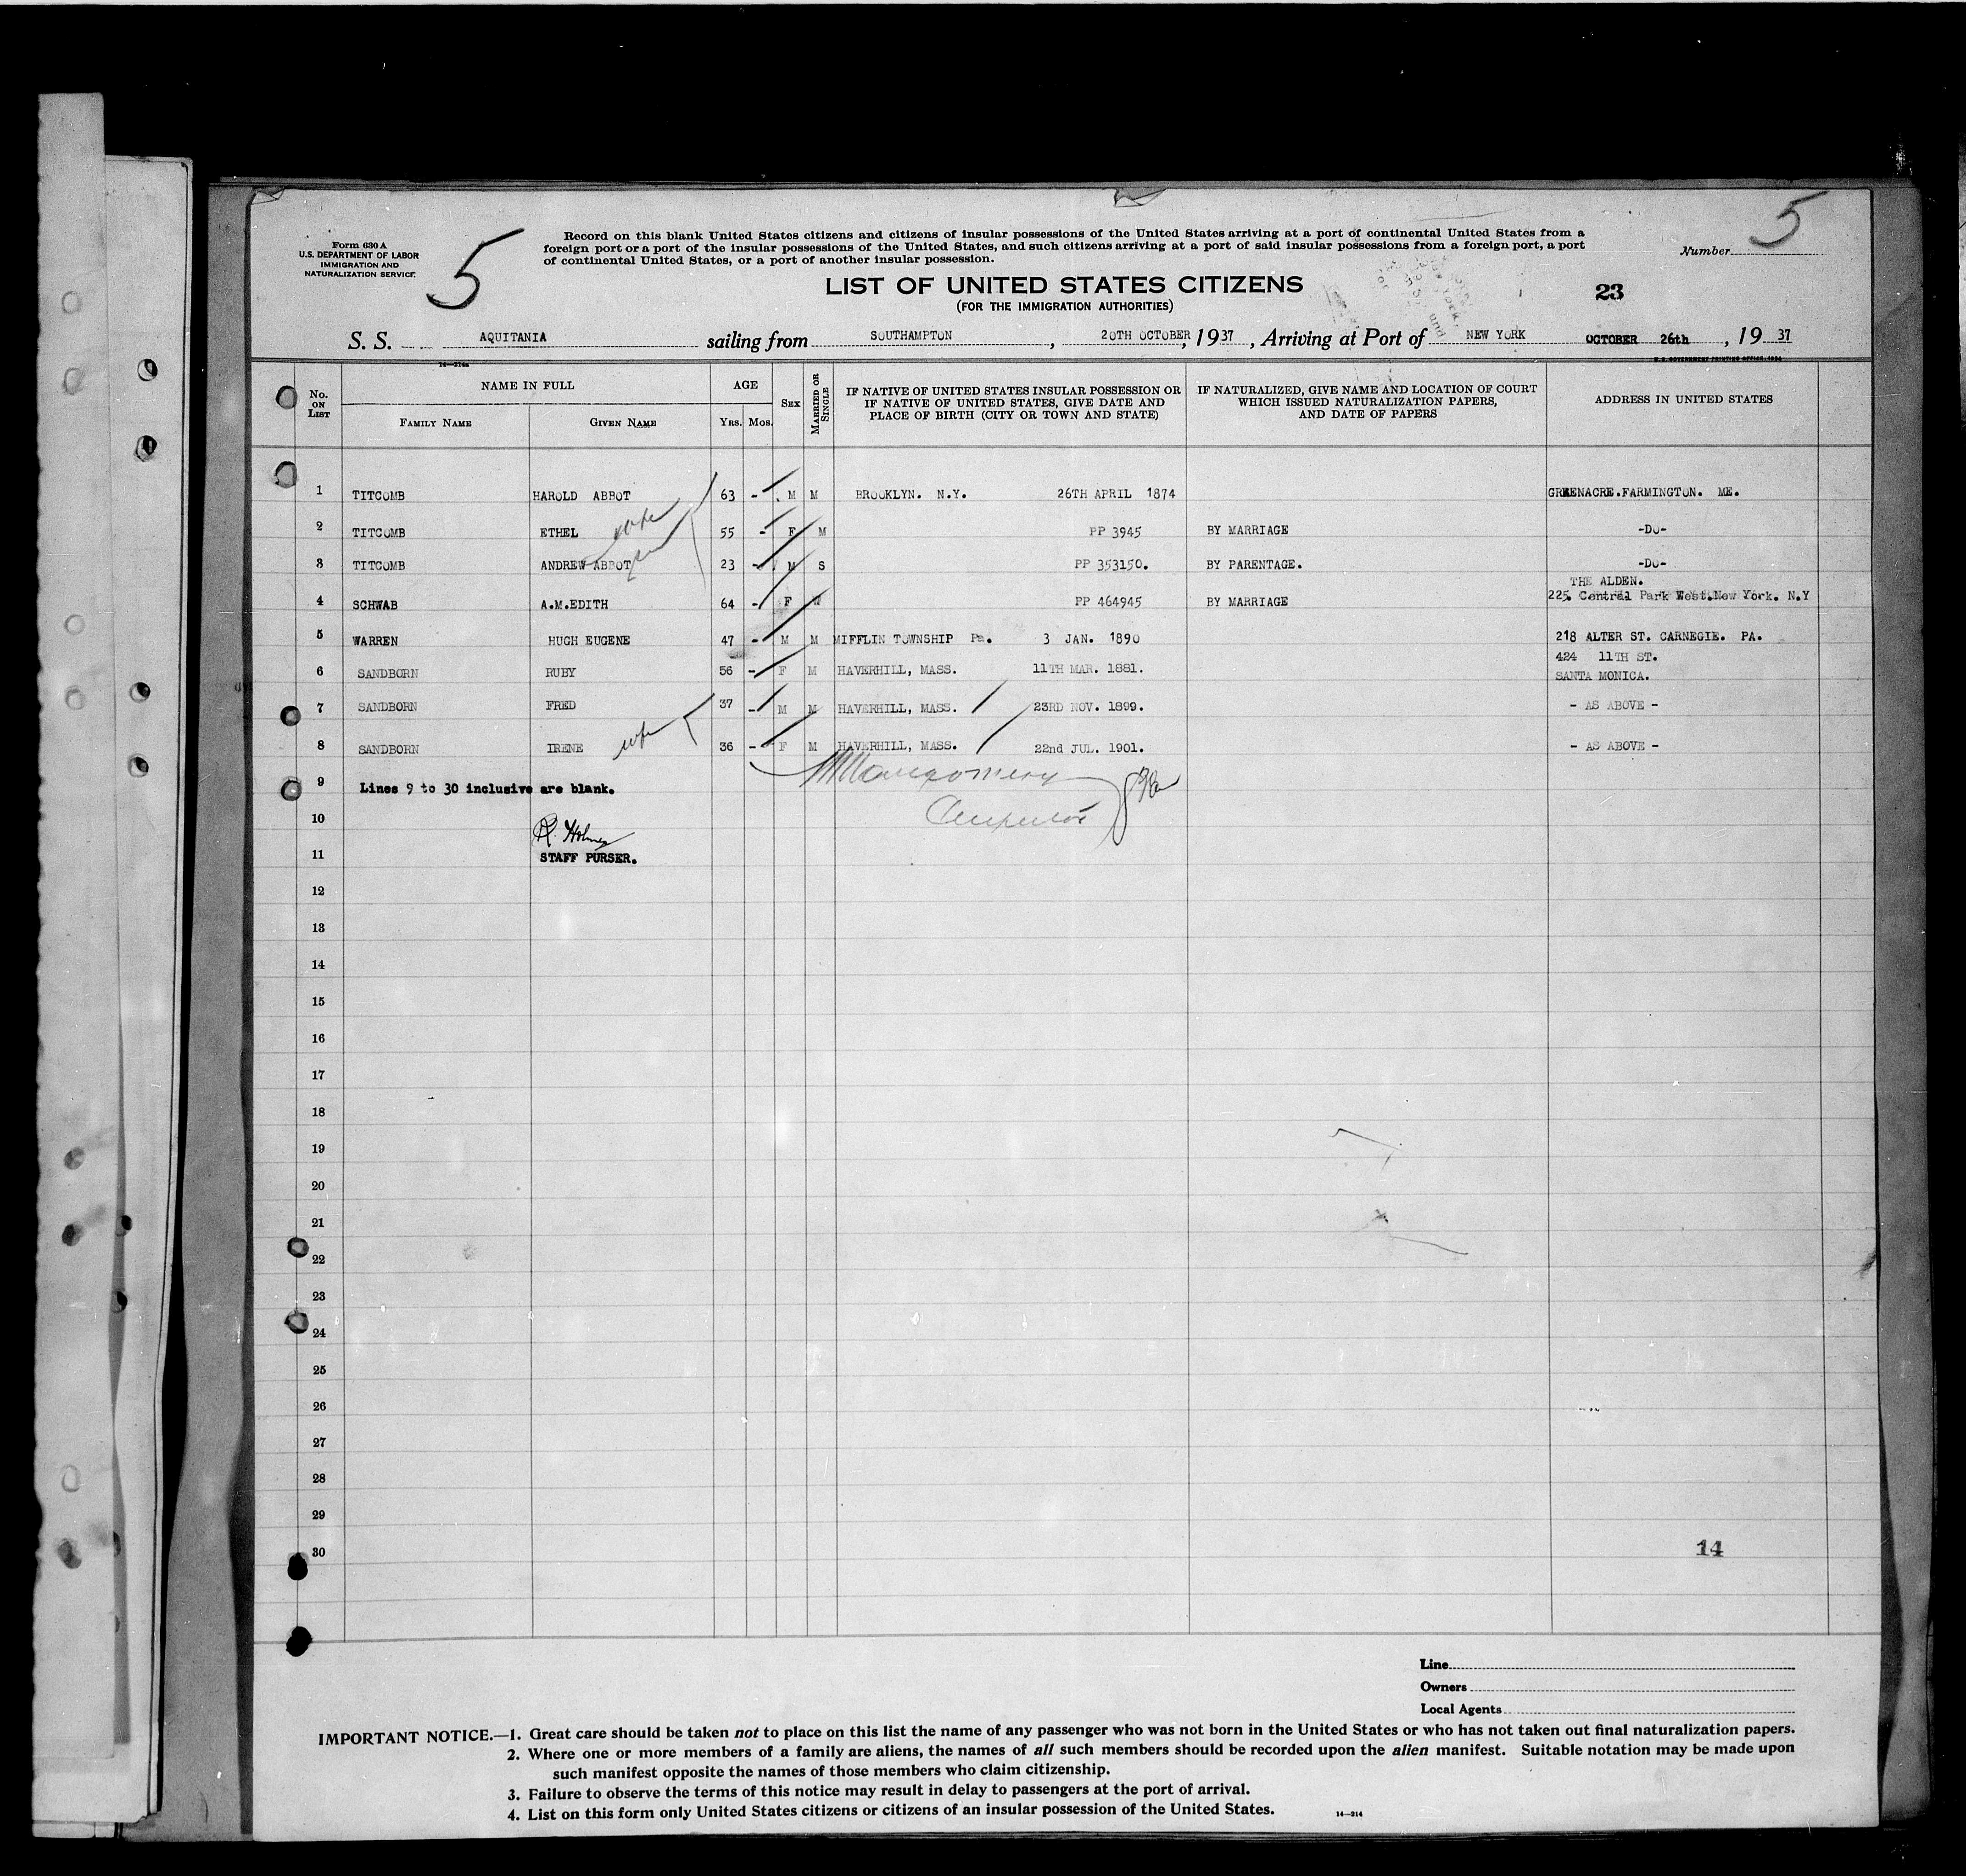 Form 630 A
U.S. DEPARTMENT OF LABOR
IMMIGRATION AND
NATURALIZATION SERVICE
5
Record on this blank United States citizens and citizens of insular possessions of the United States arriving at a port of continental United States from a
foreign port or a port of the insular possessions of the United States, and such citizens arriving at a port of said insular possessions from a foreign port, a port
of continental United States, or a port of another insular possession.
Number 5
LIST OF UNITED STATES CITIZENS
(FOR THE IMMIGRATION AUTHORITIES)
23
S. S. AQUITANIA sailing from SOUTHAMPTON, 20TH OCTOBER, 1937, Arriving at Port of NEW YORK OCTOBER 26th, 19 37
14—214a
U.S. GOVERNMENT PRINTING OFFICE: 1934
No. ON LIST
NAME IN FULL
FAMILY NAME
GIVEN NAME
AGE
YRS. MOS.
SEX
MARRIED OR SINGLE
IF NATIVE OF UNITED STATES INSULAR POSSESSION OR
IF NATIVE OF UNITED STATES, GIVE DATE AND
PLACE OF BIRTH (CITY OR TOWN AND STATE)
IF NATURALIZED, GIVE NAME AND LOCATION OF COURT
WHICH ISSUED NATURALIZATION PAPERS,
AND DATE OF PAPERS
ADDRESS IN UNITED STATES
1 TITCOMB HAROLD ABBOT 63 - M M BROOKLYN. N.Y. 26TH APRIL 1874 GREENACRE.FARMINGTON. ME.
2 TITCOMB ETHEL wife 55 - F M PP 3945 BY MARRIAGE -DO-
3 TITCOMB ANDREW ABBOT 23 - M S PP 353150. BY PARENTAGE. -DO-
THE ALDEN.
4 SCHWAB A.M.EDITH 64 - F W PP 464945 BY MARRIAGE 225. Central Park West.New York. N.Y
5 WARREN HUGH EUGENE 47 - M M MIFFLIN TOWNSHIP Pa. 3 JAN. 1890 218 ALTER ST. CARNEGIE. PA.
424 11TH ST.
6 SANDBORN RUBY 56 - F M HAVERHILL, MASS. 11TH MAR. 1881. SANTA MONICA.
7 SANDBORN FRED 37 - M M HAVERHILL, MASS. 23RD NOV. 1899. - AS ABOVE -
8 SANDBORN IRENE wife 36 - F M HAVERHILL, MASS. 22nd JUL. 1901. - AS ABOVE -
9 Lines 9 to 30 inclusive are blank.
Montgomery
10
R. Holmes
11 STAFF PURSER.
12
13
14
15
16
17
18
19
20
21
22
23
24
25
26
27
28
29
30
14
Line
Owners
Local Agents
IMPORTANT NOTICE.—1. Great care should be taken not to place on this list the name of any passenger who was not born in the United States or who has not taken out final naturalization papers.
2. Where one or more members of a family are aliens, the names of all such members should be recorded upon the alien manifest. Suitable notation may be made upon
such manifest opposite the names of those members who claim citizenship.
3. Failure to observe the terms of this notice may result in delay to passengers at the port of arrival.
4. List on this form only United States citizens or citizens of an insular possession of the United States.
14—214